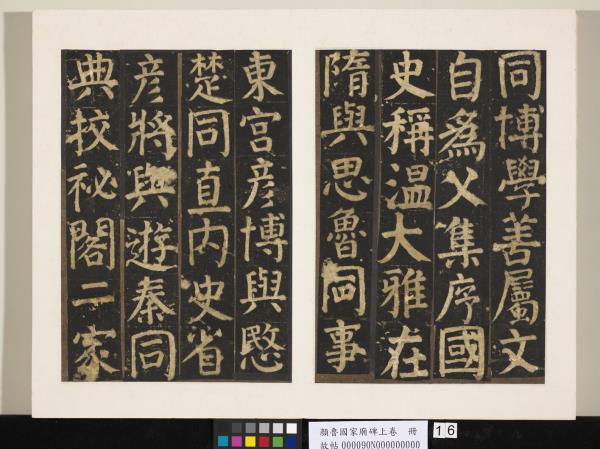 同博學善屬文
自爲父集序國
史稱温大雅在
隋與思魯同事
東宮彦博與愍
楚同直内史省
彦將與遊秦同
典挍祕閣二家
顏魯國家廟碑上卷 冊
故帖 000090N000000000
16